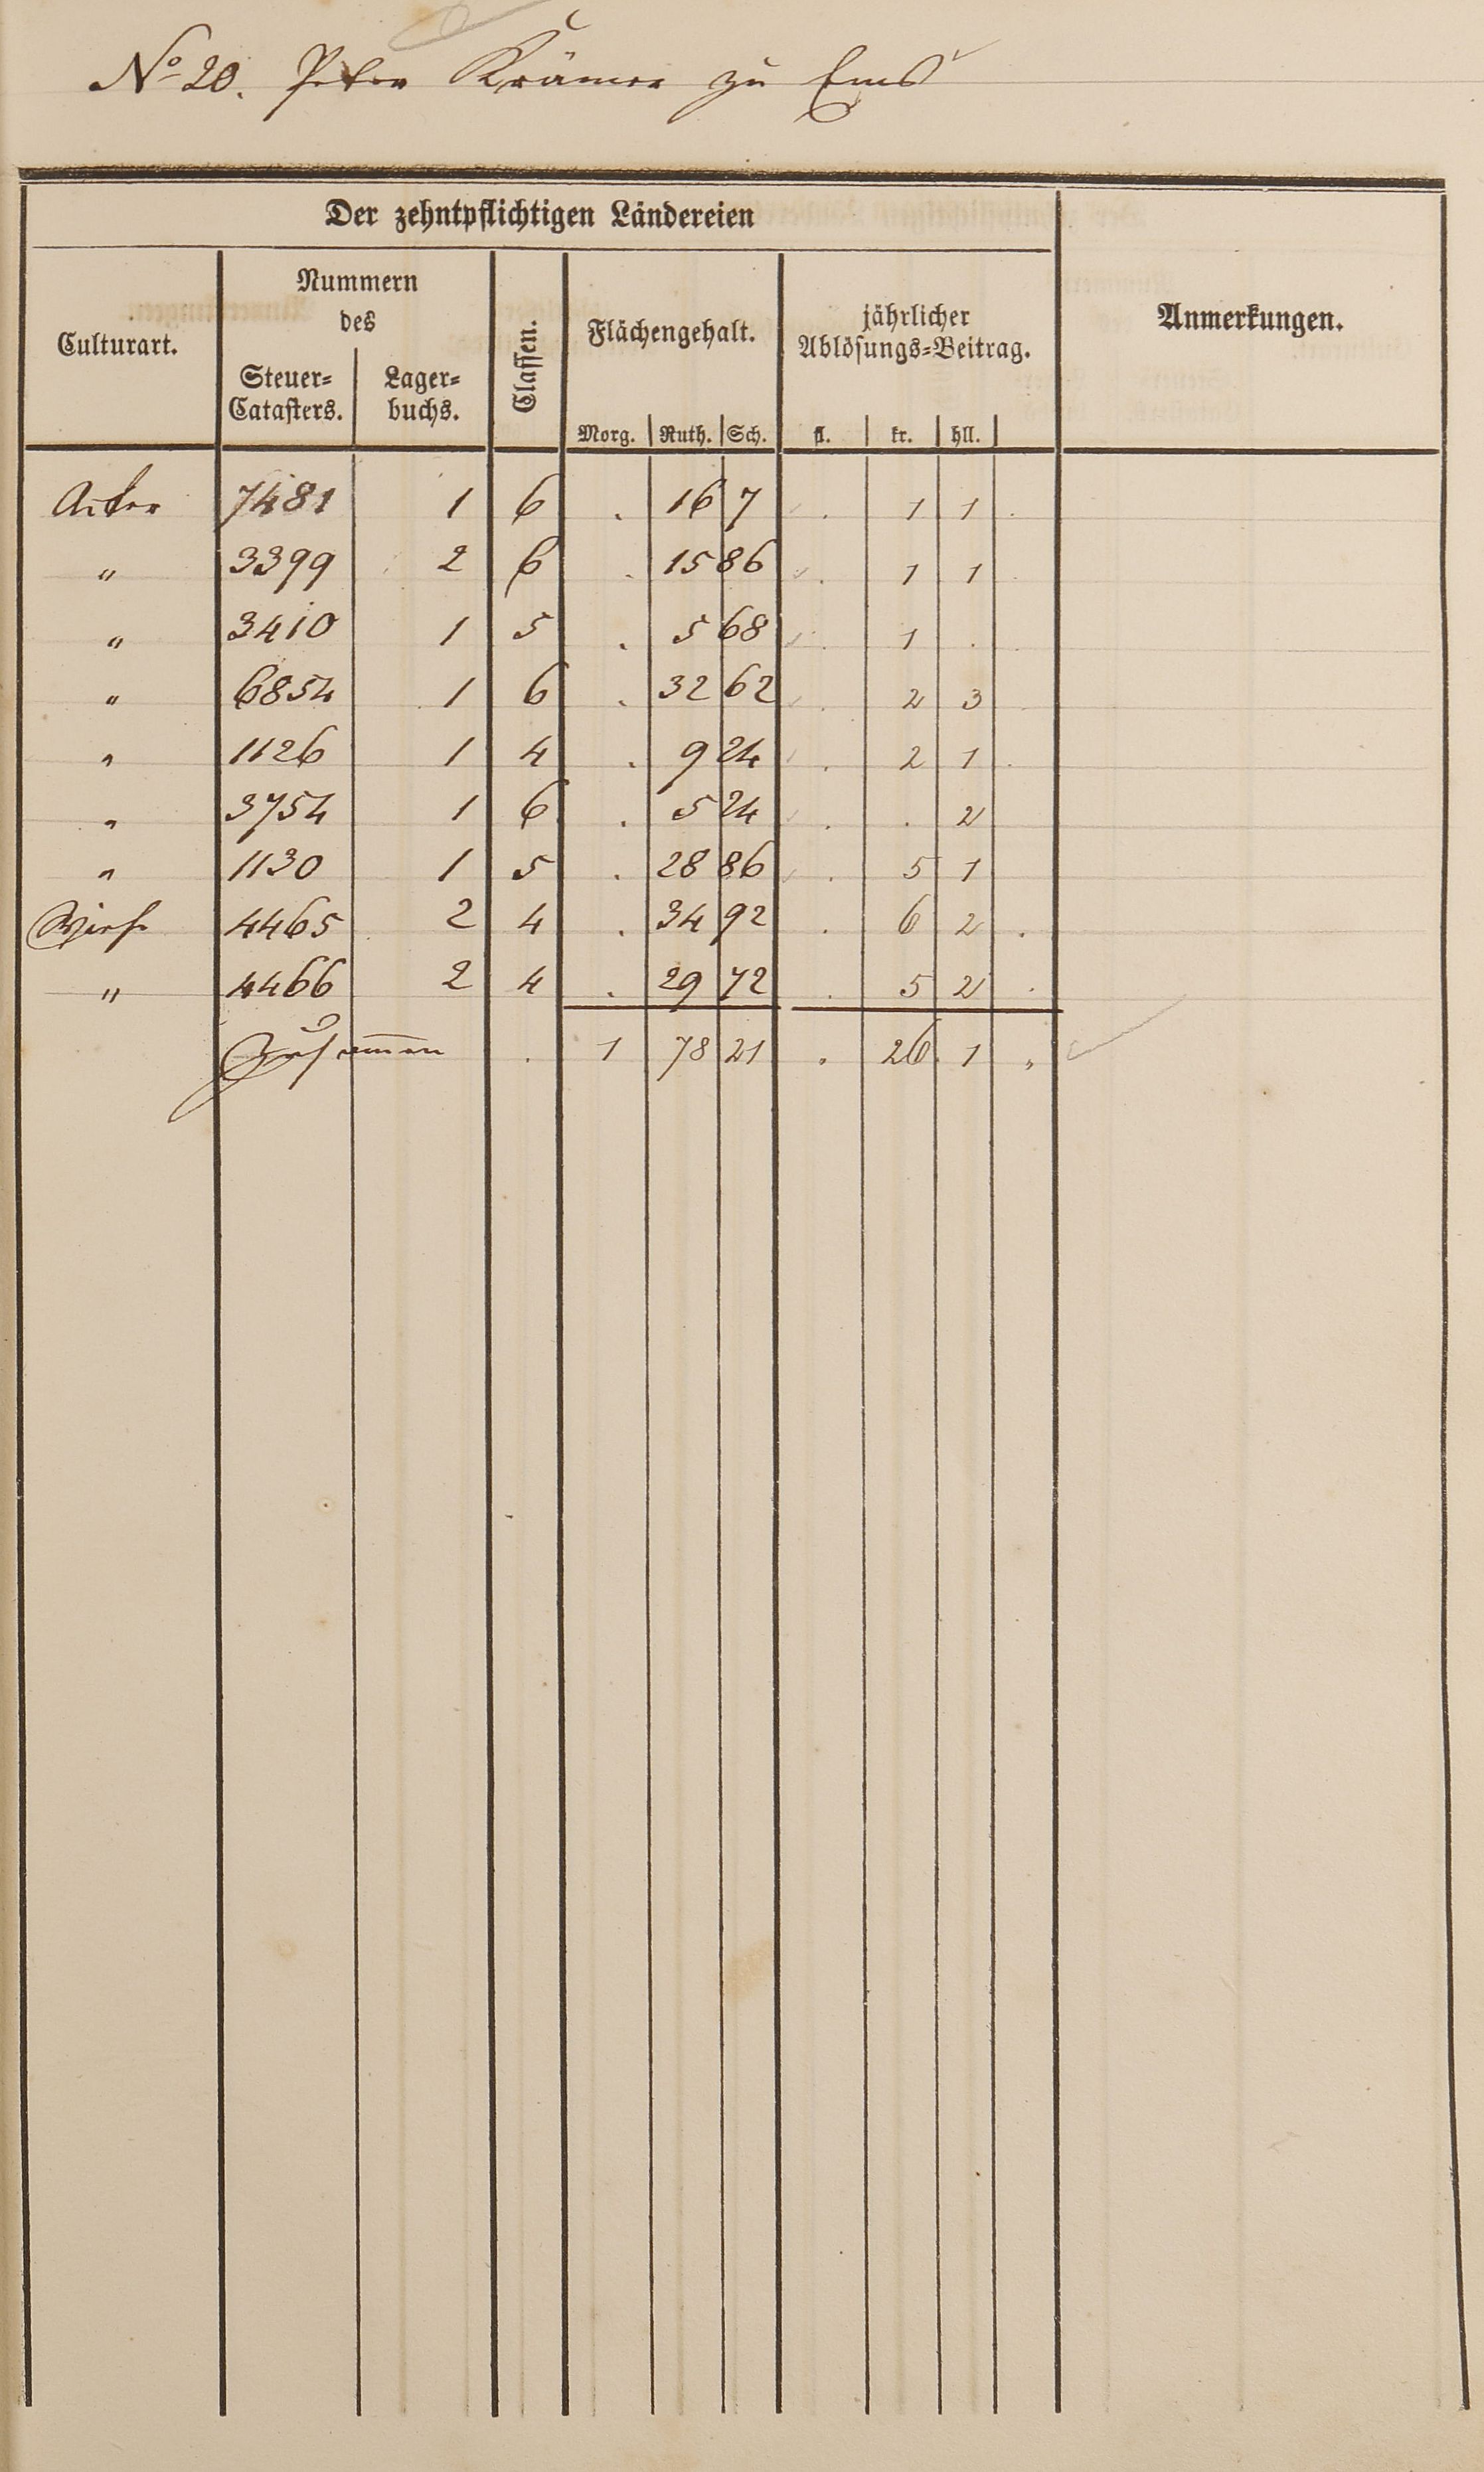 No 20. Peter Krämer zu Ems
Der zehntpflichtigen Ländereien
Culturart.
Nummern
des
Steuer-
Catasters.
Lager-
buchs.
Classen.
Flächengehalt.
Morg. Ruth. Sch.
jährlicher
Ablösungs-Beitrag.
fl. kr. hll.
Anmerkungen.
Acker 7481 1 6 . 16 7 . 1 1 .
" 3399 2 6 . 15 86 . 1 1 .
" 3410 1 5 . 5 68 . 1 . .
" 6854 1 6 . 32 62 . 2 3 .
" 1126 1 4 . 9 24 . 2 1 .
" 3754 1 6 . 5 24 . . 2
" 1130 1 5 . 28 86 . 5 1
Wiese 4465 2 4 . 34 92 . 6 2 .
" 4466 2 4 . 29 72 . 5 2 .
Zusammen . 1 78 21 . 26 1 .